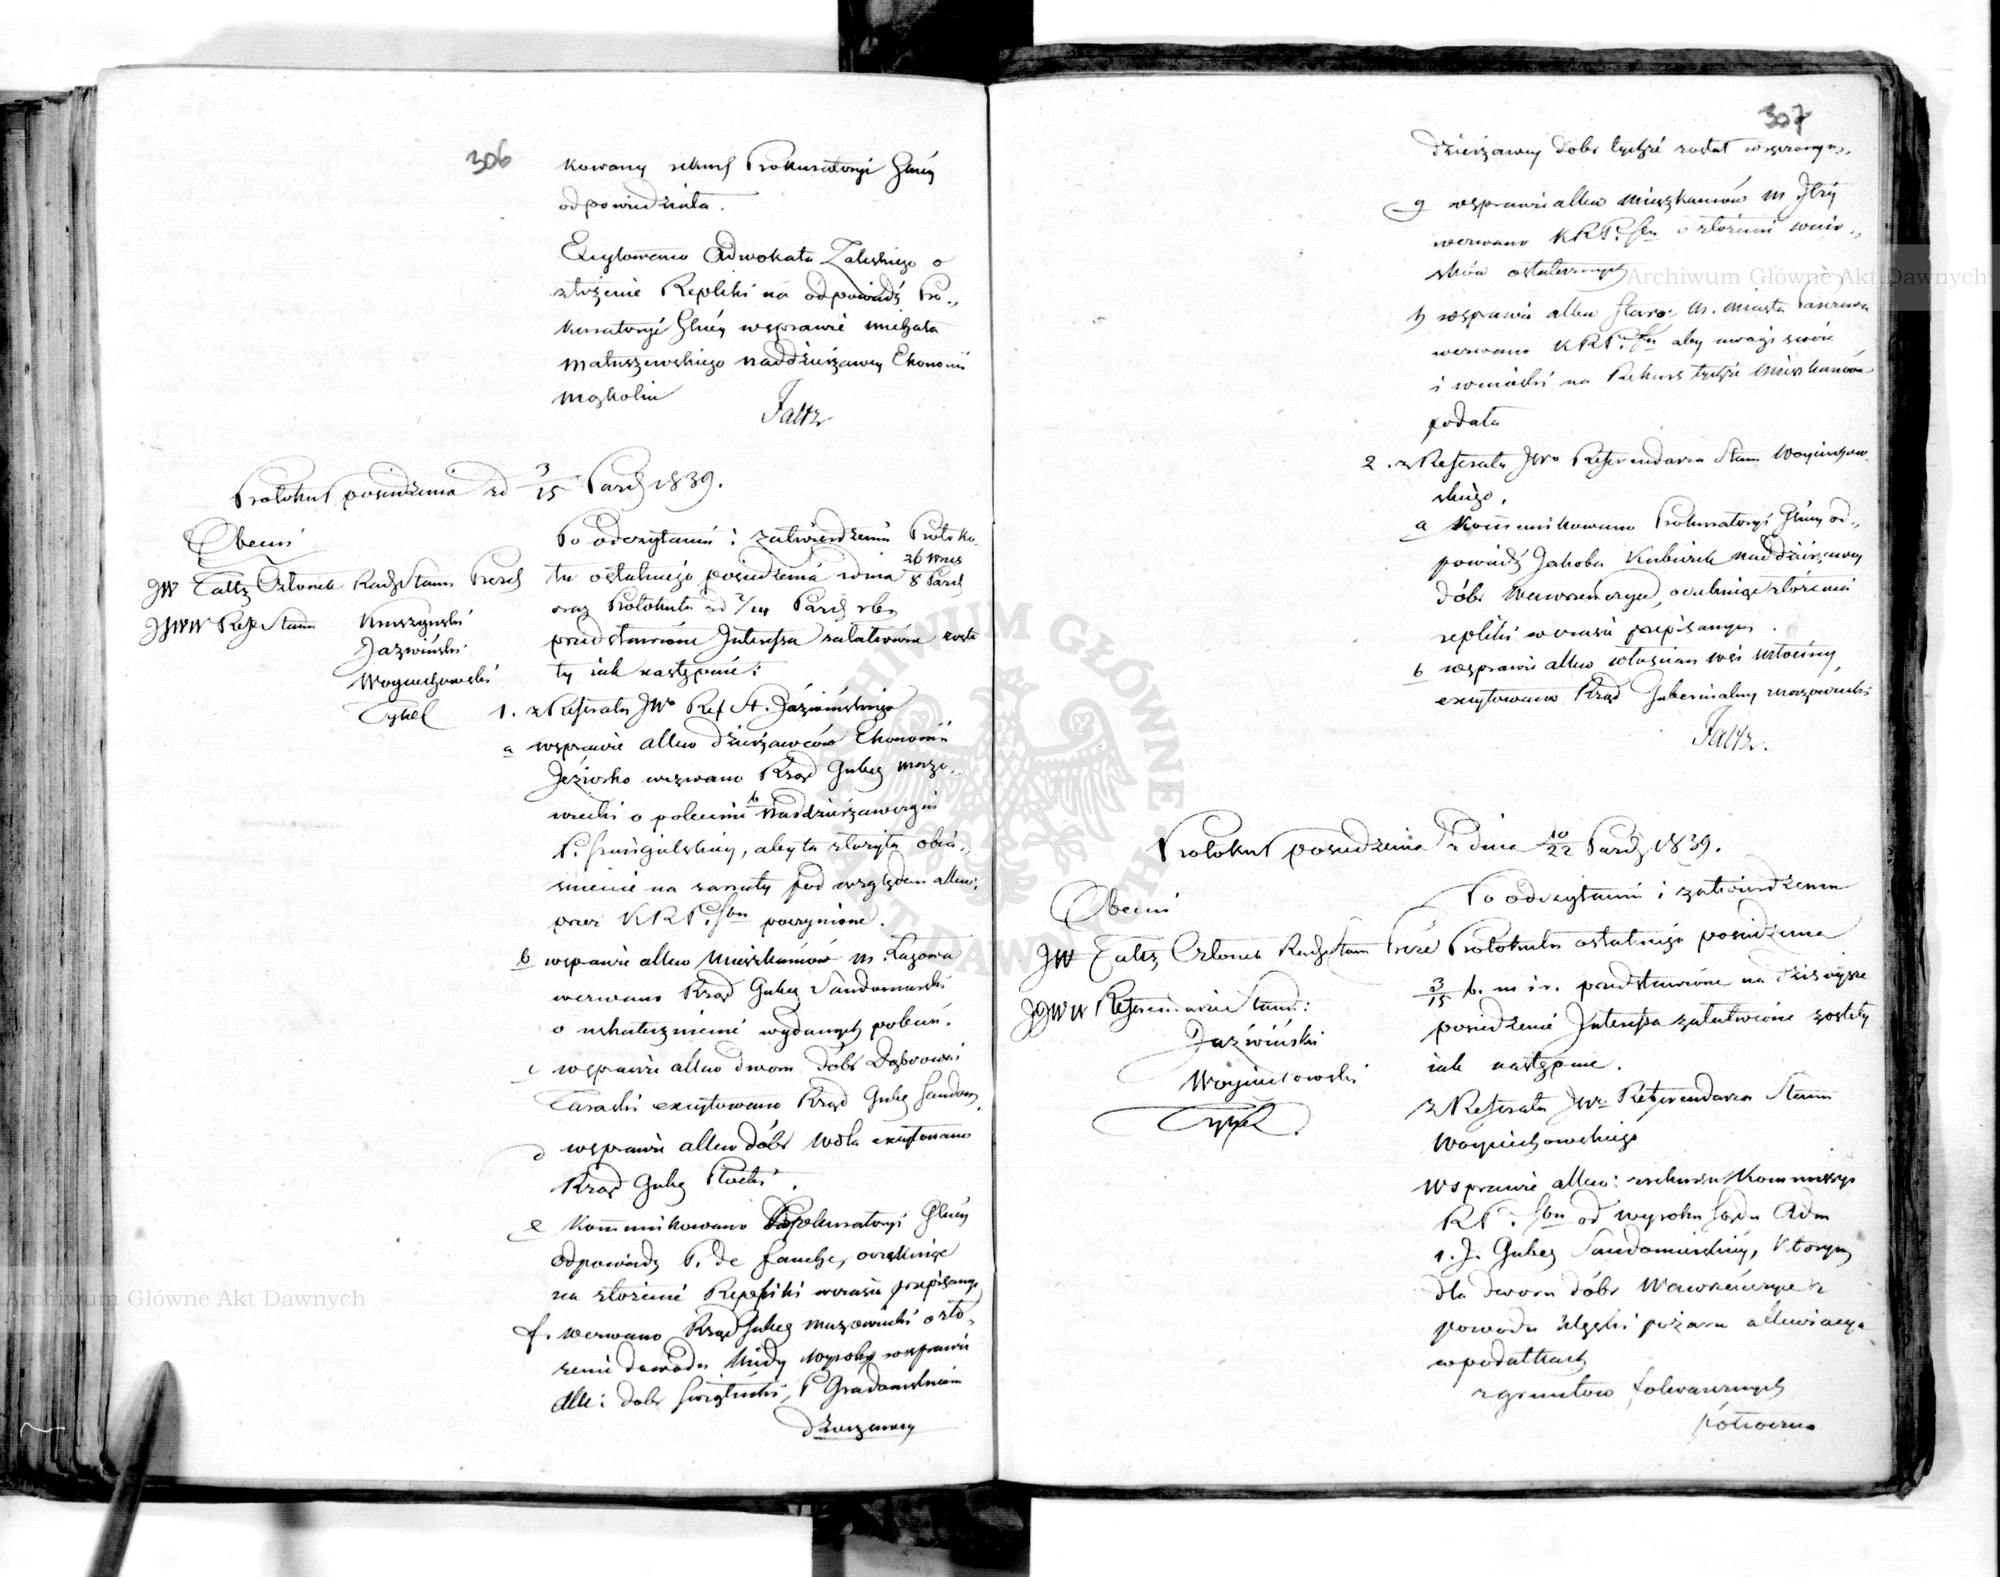 306
kowany rekurs Prokuratoryi Głnéy
odpowiedziała.
Excytowano Adwokata Zaleskiego o
złożenie Repliki na odpowiedź Pro„
kuratoryi Głnéy wsprawie Michała
Matuszewskiego naddzierzawcy Ekonomii
Faltz
Protokuł posiedzenia zd 3/15 Paźdz 1839.
Obecni
JW Faltz Członek Rady Stanu Prezd
JJWW Refer Stanu Kruszyński
Jaźwiński
Woyciechowski
Tykel
Po odczytaniu i zatwierdzeniu Protoku„
łu ostatniego posiedzenia zdnia 26 Wrześ / 8 Paźdz
oraz Protokułu zd 2/14 Paźdz rb
przedstawione Interessa załatwione zosta
ły iak następuie:
1. z Referatu JWo Ref St. Jaźwińskiego
a wsprawie allew dzierzawców Ekonomii
Jeziorko wezwano Rząd Guber Mazo„
wiecki o polecenie b naddzierzawczyni
aby ta złożyła obia„
śnienie na zarzuty pod względem allew:
przez KRP. Sbu poczynione.
b wsprawie allew Mieszkańców m. Łagowa
wezwano Rząd Guber Sandomirski
o uskutecznienie wydanych poleceń.
c wsprawie allew dworu dóbr Dąbrowa
Taraski excytowano Rząd Guber Sandom.
d wsprawie allew dóbr Wola excytowano
Rząd Guber Płocki.
e Kommunikowano Prokuratoryi Głnéy
odpowiedź P. de oczekuiąc
na złożenie Repliki wczasie przepisanym
f. wezwano Rząd Guber Mazowiecki o zło„
żenie dowodu kiedy wyrok wsprawie
Alle: dobr P
dzierzawcy
307
dzierzawcy dobr tychże został wręczonym.
g wsprawie allew mieszkańców m. Iłży
wezwano KRP. Sbu o złożenie wnio„
sków ostatecznych
h wsprawie allew Staro: m. miasta
wezwano KRP. Sbu aby uwagi swoie
i wnioski na Rekurs tychże Mieszkańców
podała
2. z Referatu JWo Referendarza Stanu Woyciechow„
skiego.
a Kommunikowano Prokuratoryi Głnéy od„
powiedź Jakoba naddzierzawcy
dóbr Wawrzeńczyce, oczekuiąc złożenia
repliki wczasie przepisanym.
b wsprawie allew włościan wsi
excytowano Rząd Gubernialny Mazowiecki
Faltz.
Protokuł posiedzenia z dnia 10/22 Paźdz 1839.
Obecni
JW Faltz Członek Rady Stanu Preze
JJWW Referendarze Stanu:
Jaźwiński
Woyciechowski
Tykel.
Po odczytaniu i zatwierdzeniu
Protokułu ostatniego posiedzenia
3/15 b. m i r. przedstawione na dzisieysze
posiedzenie Interessa załatwione zostały
iak następuie.
z Referatu JWo Referendarza Stanu
Woyciechowskiego
Wsprawie allew: rekursu Kommissyi
RP. Sbu od wyroku Sądu Adm
1. I. Guber Sandomirskiéy, którym
dla dworu dóbr Wawrzeńczyce z
powodu klęski pożaru allewiacya
wpodatkach
z gruntów folwarcznych
półroczna